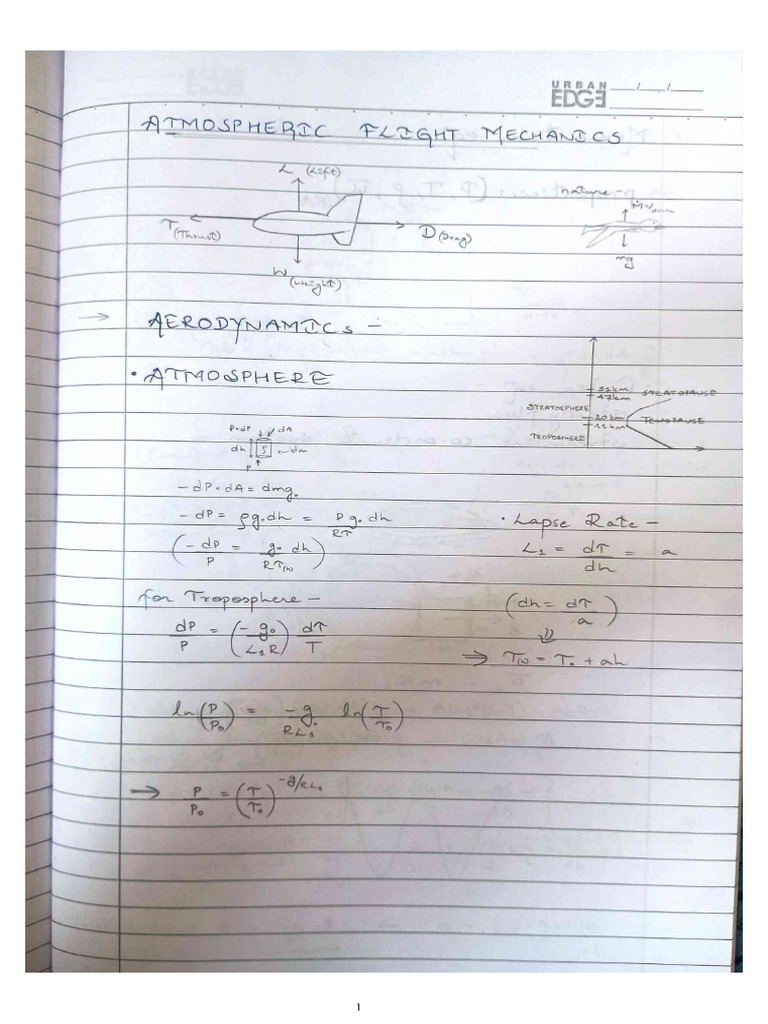 URBAN
EDGE
ATMOSPHERIC FLIGHT MECHANICS
L (Lift)
T (Thrust)
D (Drag)
W (Weight)
nature
mg
→ AERODYNAMICS –
• ATMOSPHERE
52km
47km
STRATOPAUSE
STRATOSPHERE
20km
TROPOPAUSE
11km
TROPOSPHERE
P+dP
dA
dh
dm
P
-dP·dA = dmg₀
-dP = ρg₀dh = P g₀ dh / RT
(-dP/P = g₀ dh / RT(h))
• Lapse Rate –
L₁ = dT/dh = a
for Troposphere –
(dh = dT/a)
dP/P = (-g₀/L₁R) dT/T
⇒ T(h) = T₀ + ah
ln(P/P₀) = -g₀/RL₁ ln(T/T₀)
→ P/P₀ = (T/T₀)^-g/RL₀
1